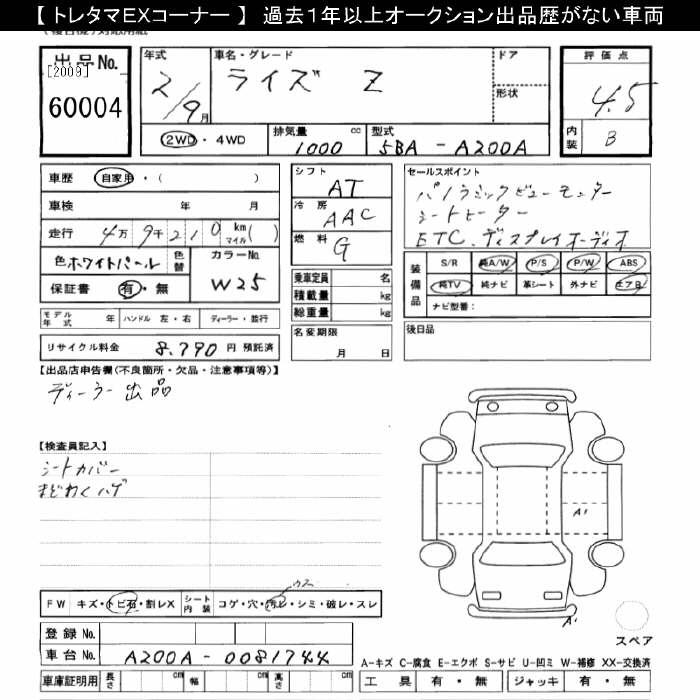 【 トレタマEXコーナー 】 過去1年以上オークション出品歴がない車両
出品No.
[2009]
60004
年式
2/9月
車名・グレード
ライズ Z
ドア
形状
評価点
4.5
内装 B
2WD・4WD
排気量 cc
1000
型式
5BA - A200A
車歴 自家用・( )
車検 年 月
走行 4万9千210 km(マイル)( )
色 ホワイトパール 色替
カラーNo.
W25
保証書 有・無
シフト
AT
冷房
AAC
燃料
G
乗車定員 名
積載量 kg
総重量 kg
セールスポイント
パノラミックビューモニター
シートヒーター
ETC.ディスプレイオーディオ
装備品
S/R 純A/W P/S P/W ABS
純TV 純ナビ 革シート 外ナビ エアB
ナビ型番:
モデル年式 年 ハンドル 左・右 ディーラー・並行
リサイクル料金 8,790 円 預託済
名変期限
月 日
後日品
【出品店申告欄(不良箇所・欠品・注意事項等)】
ディーラー出品
【検査員記入】
シートカバー
まどわくハゲ
A1
A1
FW キズ・トビ石・割レX シート内装 コゲ・穴・汚レ・シミ・破レ・スレ
スペア
登録 No.
車台 No. A200A-0081744
A-キズ C-腐食 E-エクボ S-サビ U-凹ミ W-補修 XX-交換済
車庫証明用 長さ cm 幅 cm 高さ cm
工具 有・無 ジャッキ 有・無